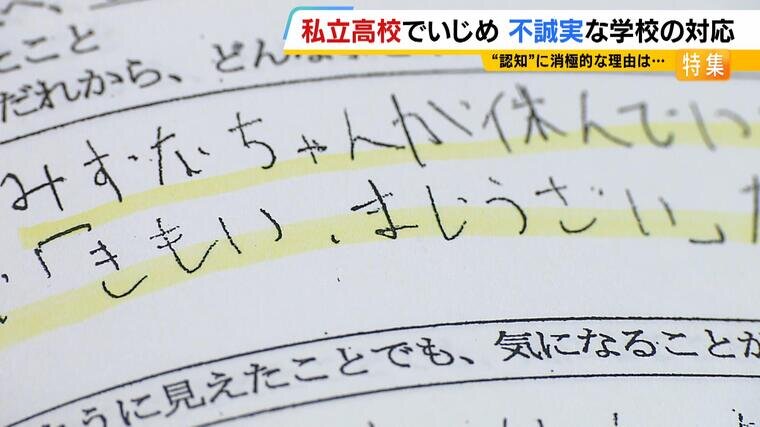 私立高校でいじめ 不誠実な学校の対応
“認知”に消極的な理由は… 特集
たこと
だれから、どん
みずなちゃんが休んでい
「きもい、まじうざい」た
ように見えたことでも、気になることが